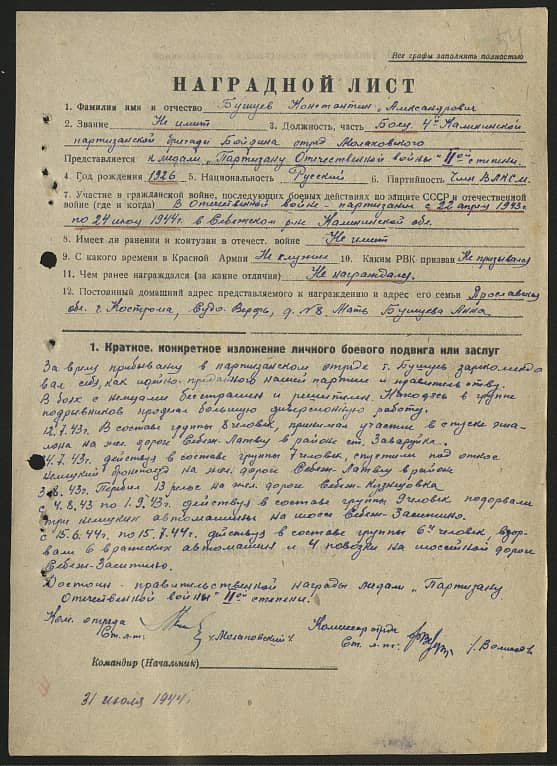 Все графы заполнять полностью
НАГРАДНОЙ ЛИСТ
1. Фамилия имя и отчество Бушуев Константин Александрович
2. Звание Не имеет 3. Должность, часть Боец 4й Калининской
партизанской бригады Бойдина отряд Молаковского
Представляется к медали „Партизану Отечественной войны" IIой степени.
4. Год рождения 1926 5. Национальность Русский 6. Партийность Член ВЛКСМ.
7. Участие в гражданской войне, последующих боевых действиях по защите СССР и отечественной
войне (где и когда) В Отечественной войне - партизаном с 22 апрел 1943г
по 24 июля 1944г. в Себежском р-не Калининской обл.
8. Имеет ли ранения и контузии в отечест. войне Не имеет
9. С какого времени в Красной Армии Не служил 10. Каким РВК призван Не призывался
11. Чем ранее награждался (за какие отличия) Не награждался.
12. Постоянный домашний адрес представляемого к награждению и адрес его семьи Ярославская
обл. г. Кострома, Судо. Верфь, д. №8. Мать Бушуева Анна.
1. Краткое, конкретное изложение личного боевого подвига или заслуг
За время пребывания в партизанском отряде т. Бушуев зарекомендо
вал себя, как идейно-преданного нашей партии и правительству.
В боях с немцами бесстрашен и решителен. Находясь в группе
подрывников проделал большую диверсионную работу.
12.7.43г. В составе группы 8 человек, принимал участие в спуске эша-
лона на жел. дороге Себеж-Латвия в районе ст. Заваруйка.
4.7.43г. действуя в составе группы 7 человек, спустили под откос
немецкий бронепоезд на жел. дороге Себеж-Латвия в районе
3.8.43г. Перебил 13 рельс на жел. дороге Себеж-Кузнецовка
с 4.8.43 по 1.9.43г. действуя в составе группы 9 человек подорвали
три немецких автомашины на шоссе Себеж-Заситино.
с 15.6.44г. по 15.7.44г. действуя в составе группы 6и человек, взор-
вали 6 вражеских автомашин и 4 повозки на шоссейной дороге
Себеж-Заситино.
Достоин - правительственной награды медали „Партизану
Отечественной войны" IIой степени.
Ком. отряда Комиссар отряда
Ст. л-т. /Молаковский/. Ст. л-т.
Командир (Начальник)
31 июля 1944г.